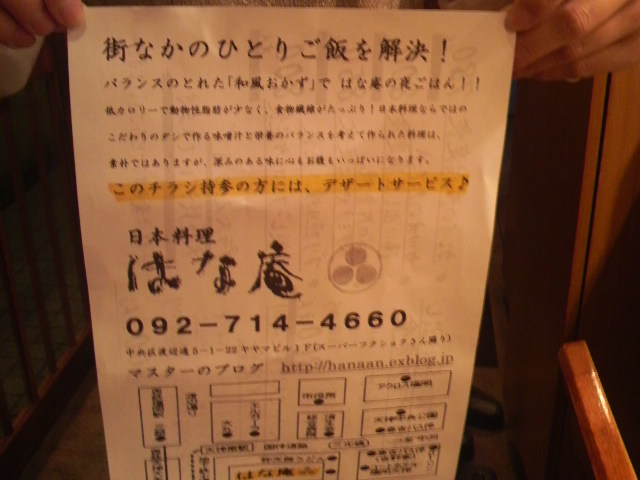 街なかのひとりご飯を解決！
バランスのとれた「和風おかず」で はな庵の夜ごはん！！
低カロリーで動物性脂肪が少なく、食物繊維がたっぷり！日本料理ならではの
こだわりのダシで作る味噌汁と栄養のバランスを考えて作られた料理は、
素朴ではありますが、深みのある味に心もお腹もいっぱいになります。
このチラシ持参の方には、デザートサービス♪
日本料理
はな庵
092-714-4660
中央区渡辺通5-1-22ヤヤマビル1F(スーパーフクショクさん隣り)
マスターのブログ http://hanaan.exblog.jp
アクロス福岡
市役所
天神中央公園
三越
はな庵